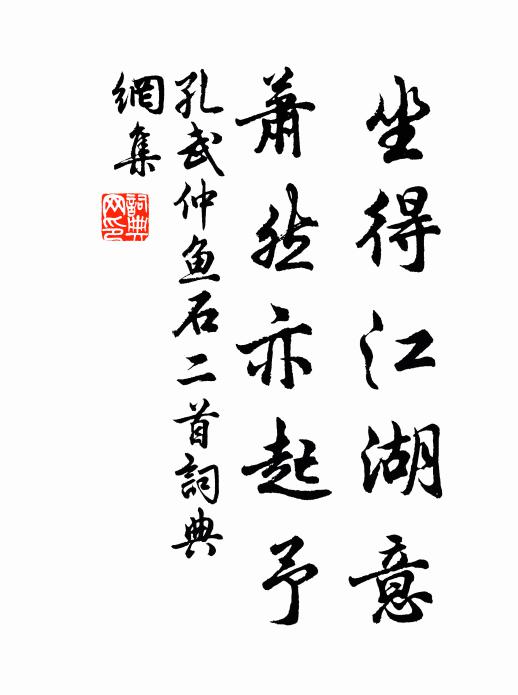 坐得江湖意
蕭然亦起予
孔武仲鱼石二首詞典
網集
詞典
网印